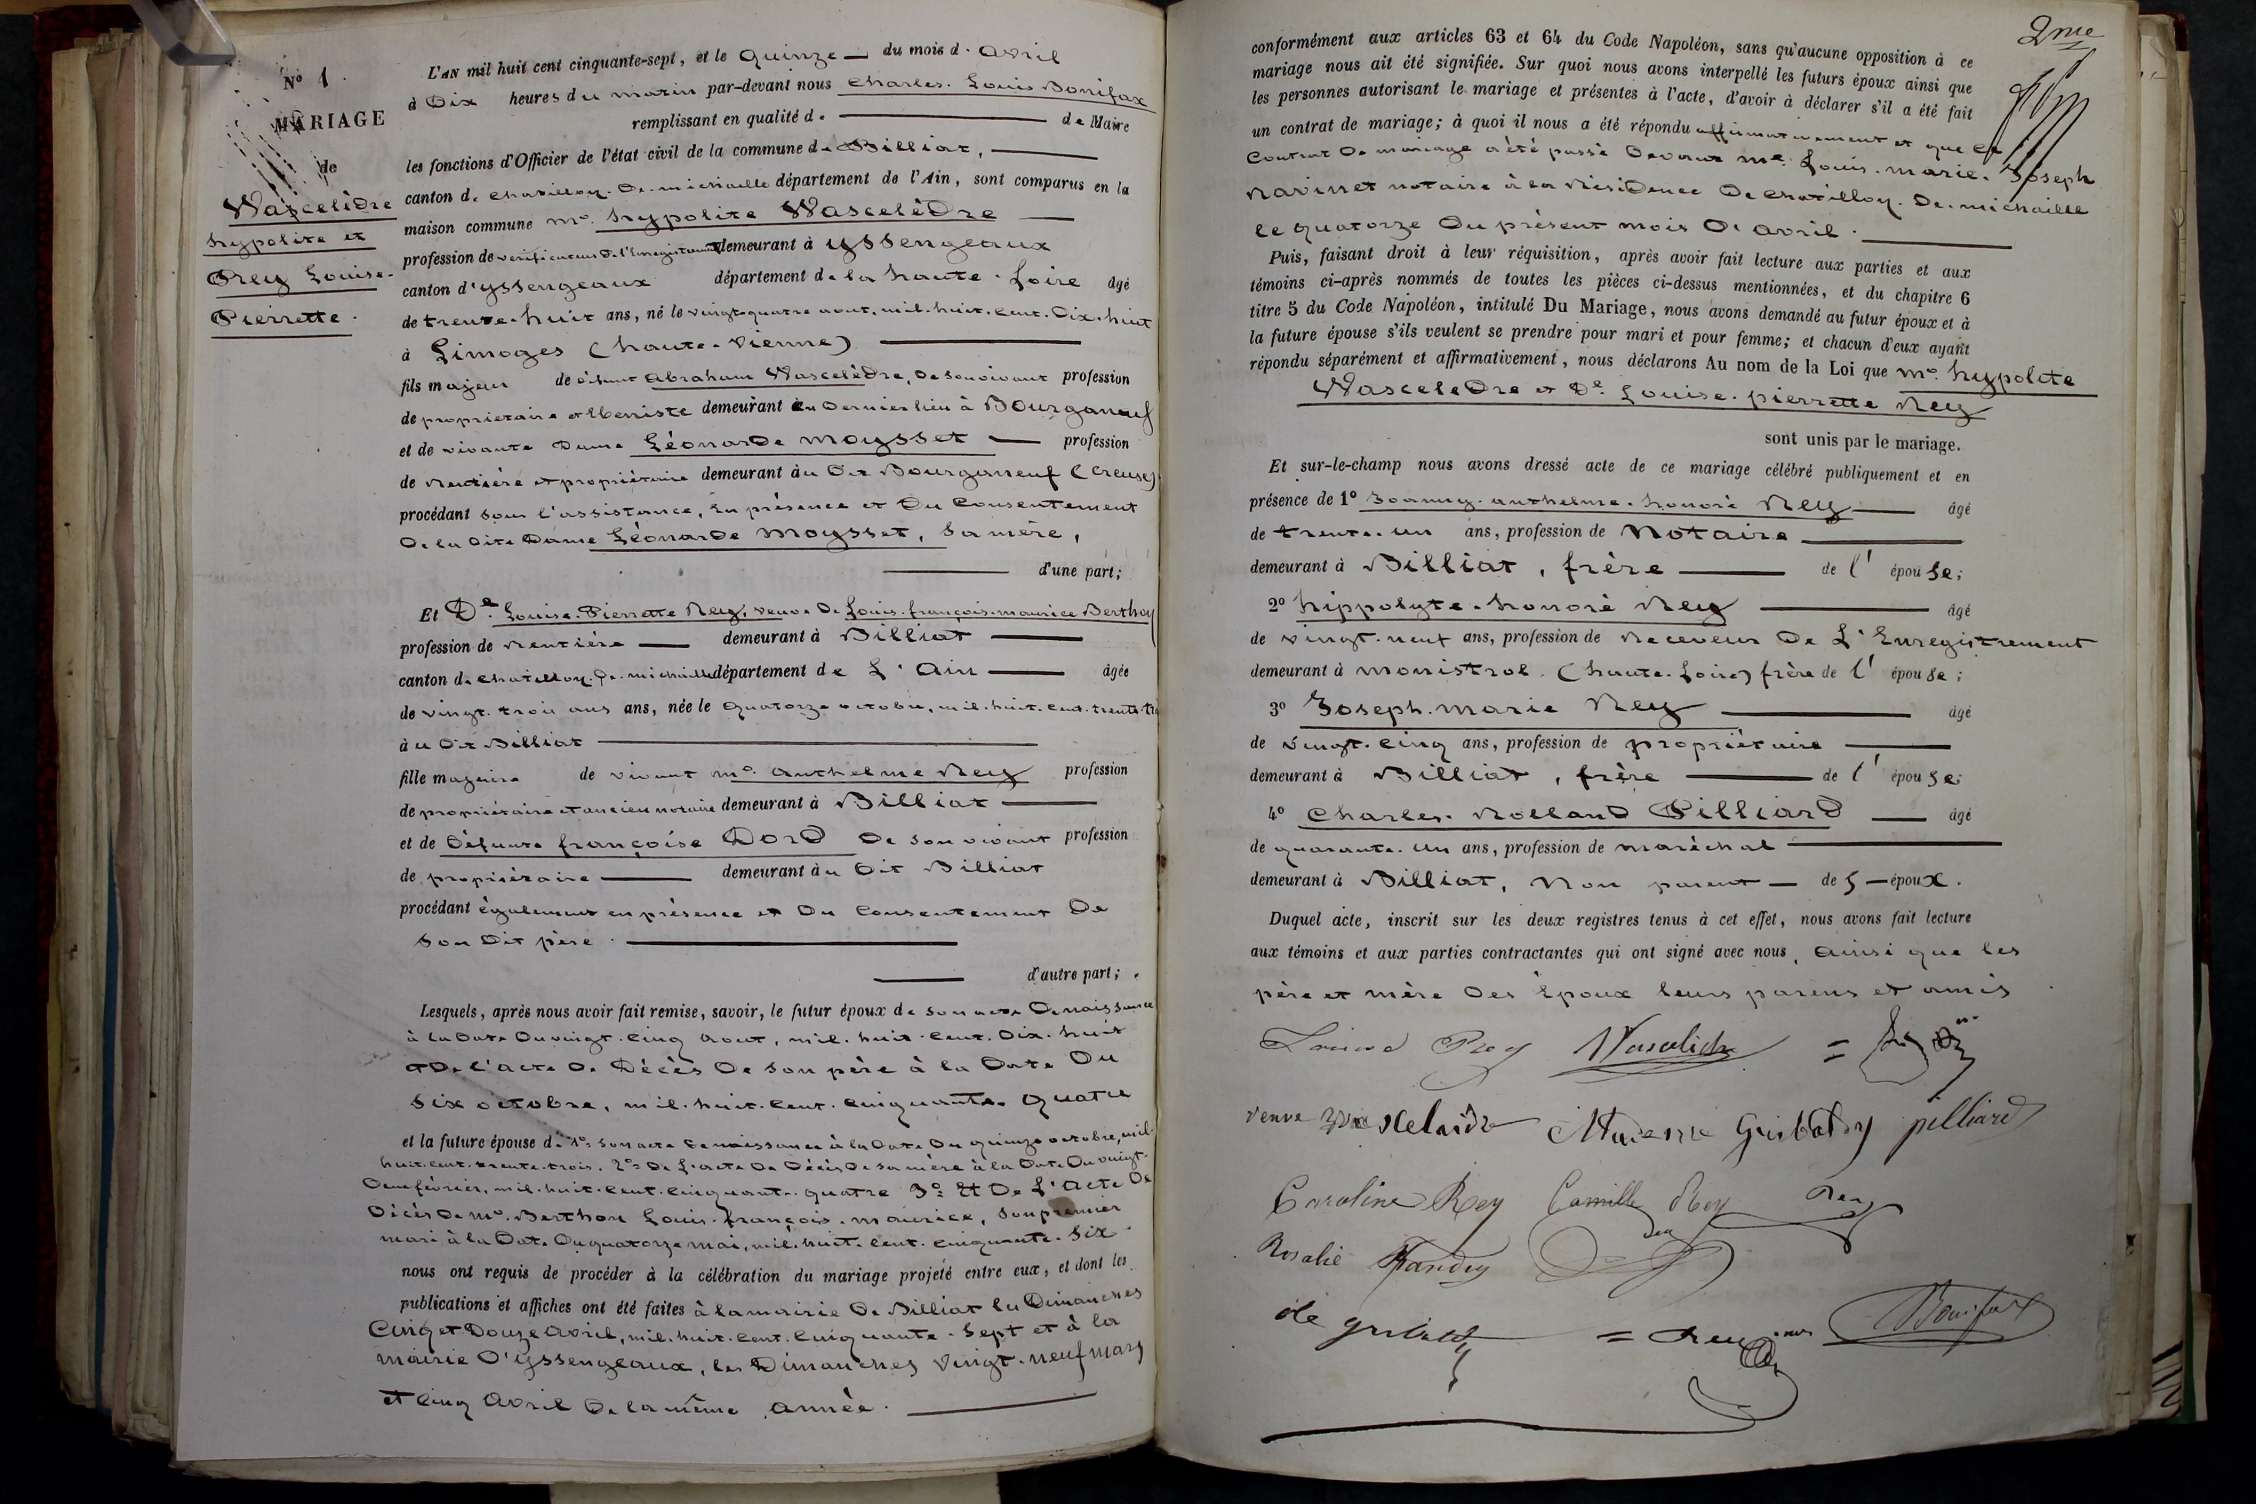 N° 1
MARIAGE
de
Wascelèdre
hypolite et
Rey Louise-
Pierrette.
L'AN mil huit cent cinquante-sept, et le quinze du mois d. avril
à Dix heures du matin par-devant nous Charles. Louis Bonifax
remplissant en qualité d. de Maire
les fonctions d'Officier de l'état civil de la commune de Billiat,
canton de Chatillon. De. michaille département de l'Ain, sont comparus en la
maison commune mr. hypolite Wascelèdre
profession de vérificateur de l'Enregistrement demeurant à yssengeaux
canton d'yssengeaux département de la haute. Loire âgé
de trente. huit ans, né le vingt-quatre aout. mil. huit. cent. Dix. huit
à Limoges (haute. Vienne)
fils majeur de défunt Abraham Wascelèdre, de son vivant profession
de propriétaire et Ebeniste demeurant en dernier lieu à Bourganeuf
et de vivante Dame Léonarde moysset profession
de rentière et propriétaire demeurant au Dit Bourganeuf (Creuse)
procédant sous l'assistance, En présence et Du Consentement
De la Dite Dame Léonarde Moysset, Sa mère,
d'une part;
Et De. Louise. Pierrette Rey, veuve De Louis. françois. maurice Berthou
profession de Rentière demeurant à Billiat
canton de Chatillon. De. michaille département de L'Ain âgée
de vingt. trois ans ans, née le quatorze octobre, mil. huit. cent. trente. trois
à u Dit Billiat
fille majeure de vivant mr. Anthelme Rey profession
de propriétaire et ancien notaire demeurant à Billiat
et de Défunte françoise Dord De son vivant profession
de propriétaire demeurant à u Dit Billiat
procédant également en présence et Du Consentement De
Son Dit père.
d'autre part;
Lesquels, après nous avoir fait remise, savoir, le futur époux de son acte De naissance
à la Date Du vingt. Cinq Aout, mil. huit. cent. Dix. huit
et De l'acte De Décès De Son père à la Date Du
Six octobre, mil. huit. cent. cinquante. quatre
et la future épouse de 1°: Son acte De naissance à la Date Du quinze octobre, mil.
huit. cent. trente. trois. 2°: De L'acte De Décès De Sa mère à la Date Du vingt.
Deux février, mil. huit. cent. cinquante. quatre 3°: Et De L'acte De
Décès De mr. Berthou Louis. françois. maurice, Son premier
mari à la Date Du quatorze mai, mil. huit. cent. cinquante. Six.
nous ont requis de procéder à la célébration du mariage projeté entre eux, et dont les
publications et affiches ont été faites à la mairie De Billiat les Dimanches
Cinq et Douze Avril, mil. huit. cent. cinquante. Sept et à la
mairie D'yssengeaux, les Dimanches vingt. neuf mars
et Cinq Avril De la même année.
2me
conformément aux articles 63 et 64 du Code Napoléon, sans qu'aucune opposition à ce
mariage nous ait été signifiée. Sur quoi nous avons interpellé les futurs époux ainsi que
les personnes autorisant le mariage et présentes à l'acte, d'avoir à déclarer s'il a été fait
un contrat de mariage; à quoi il nous a été répondu affirmativement et que Ce
Contrat De mariage a été passé Devant me. Louis. marie. Joseph
Ravinet notaire à la Résidence De Chatillon. De. michaille
le quatorze Du présent mois D'avril.
Puis, faisant droit à leur réquisition, après avoir fait lecture aux parties et aux
témoins ci-après nommés de toutes les pièces ci-dessus mentionnées, et du chapitre 6
titre 5 du Code Napoléon, intitulé Du Mariage, nous avons demandé au futur époux et à
la future épouse s'ils veulent se prendre pour mari et pour femme; et chacun d'eux ayant
répondu séparément et affirmativement, nous déclarons Au nom de la Loi que mr. hypolite
Wasceledre et De. Louise. pierrette Rey
sont unis par le mariage.
Et sur-le-champ nous avons dressé acte de ce mariage célébré publiquement et en
présence de 1° Joanny. anthelme. honoré Rey âgé
de trente. un ans, profession de Notaire
demeurant à Billiat, frère de l' épouse;
2° hippolyte. honoré Rey âgé
de vingt. neuf ans, profession de Receveur De L'Enregistrement
demeurant à monistrol. (haute. Loire) frère de l' épouse;
3° Joseph. marie Rey âgé
de vingt. cinq ans, profession de propriétaire
demeurant à Billiat, frère de l' épouse;
4° Charles. Rolland Pilliard âgé
de quarante. un ans, profession de maréchal
demeurant à Billiat, Non parent de s époux.
Duquel acte, inscrit sur les deux registres tenus à cet effet, nous avons fait lecture
aux témoins et aux parties contractantes qui ont signé avec nous, ainsi que les
père et mère Des Époux leurs parens et amis
Louise Rey Wascelidre
veuve Wascelaidre pilliard
Caroline Rey Camille Rey Rey
Rosalie
Rey Bonifax